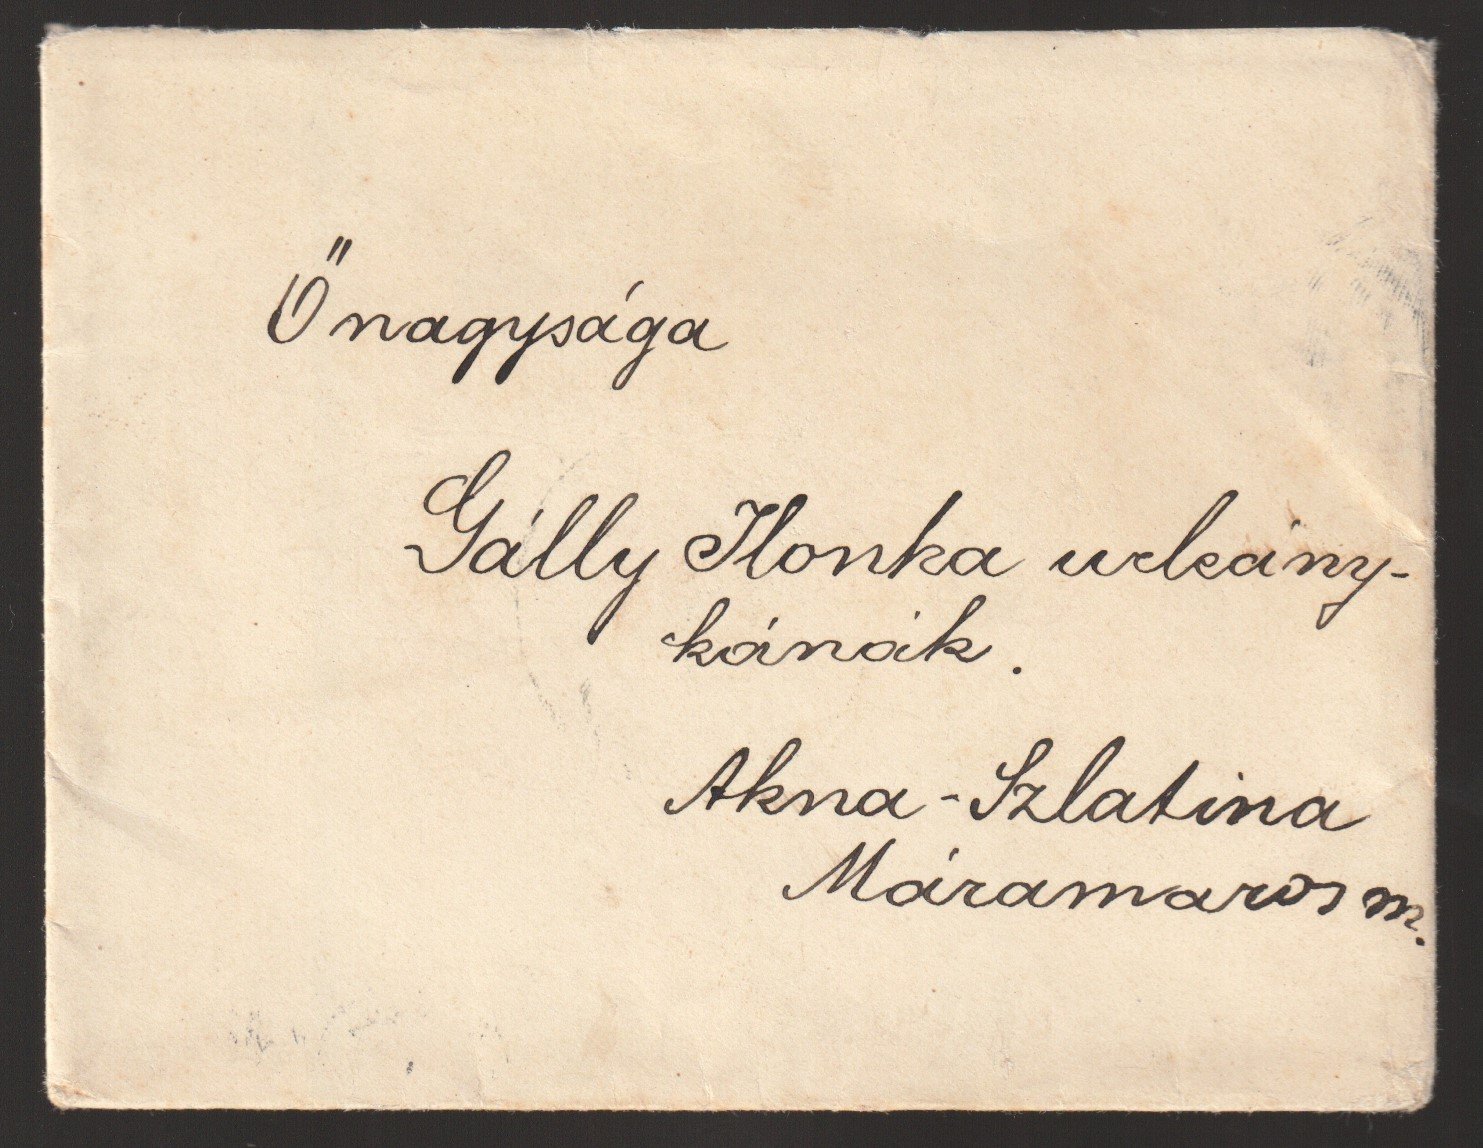 Őnagysága
Gálly Ilonka urleány-
kának.
Akna-Szlatina
Máramaros m.